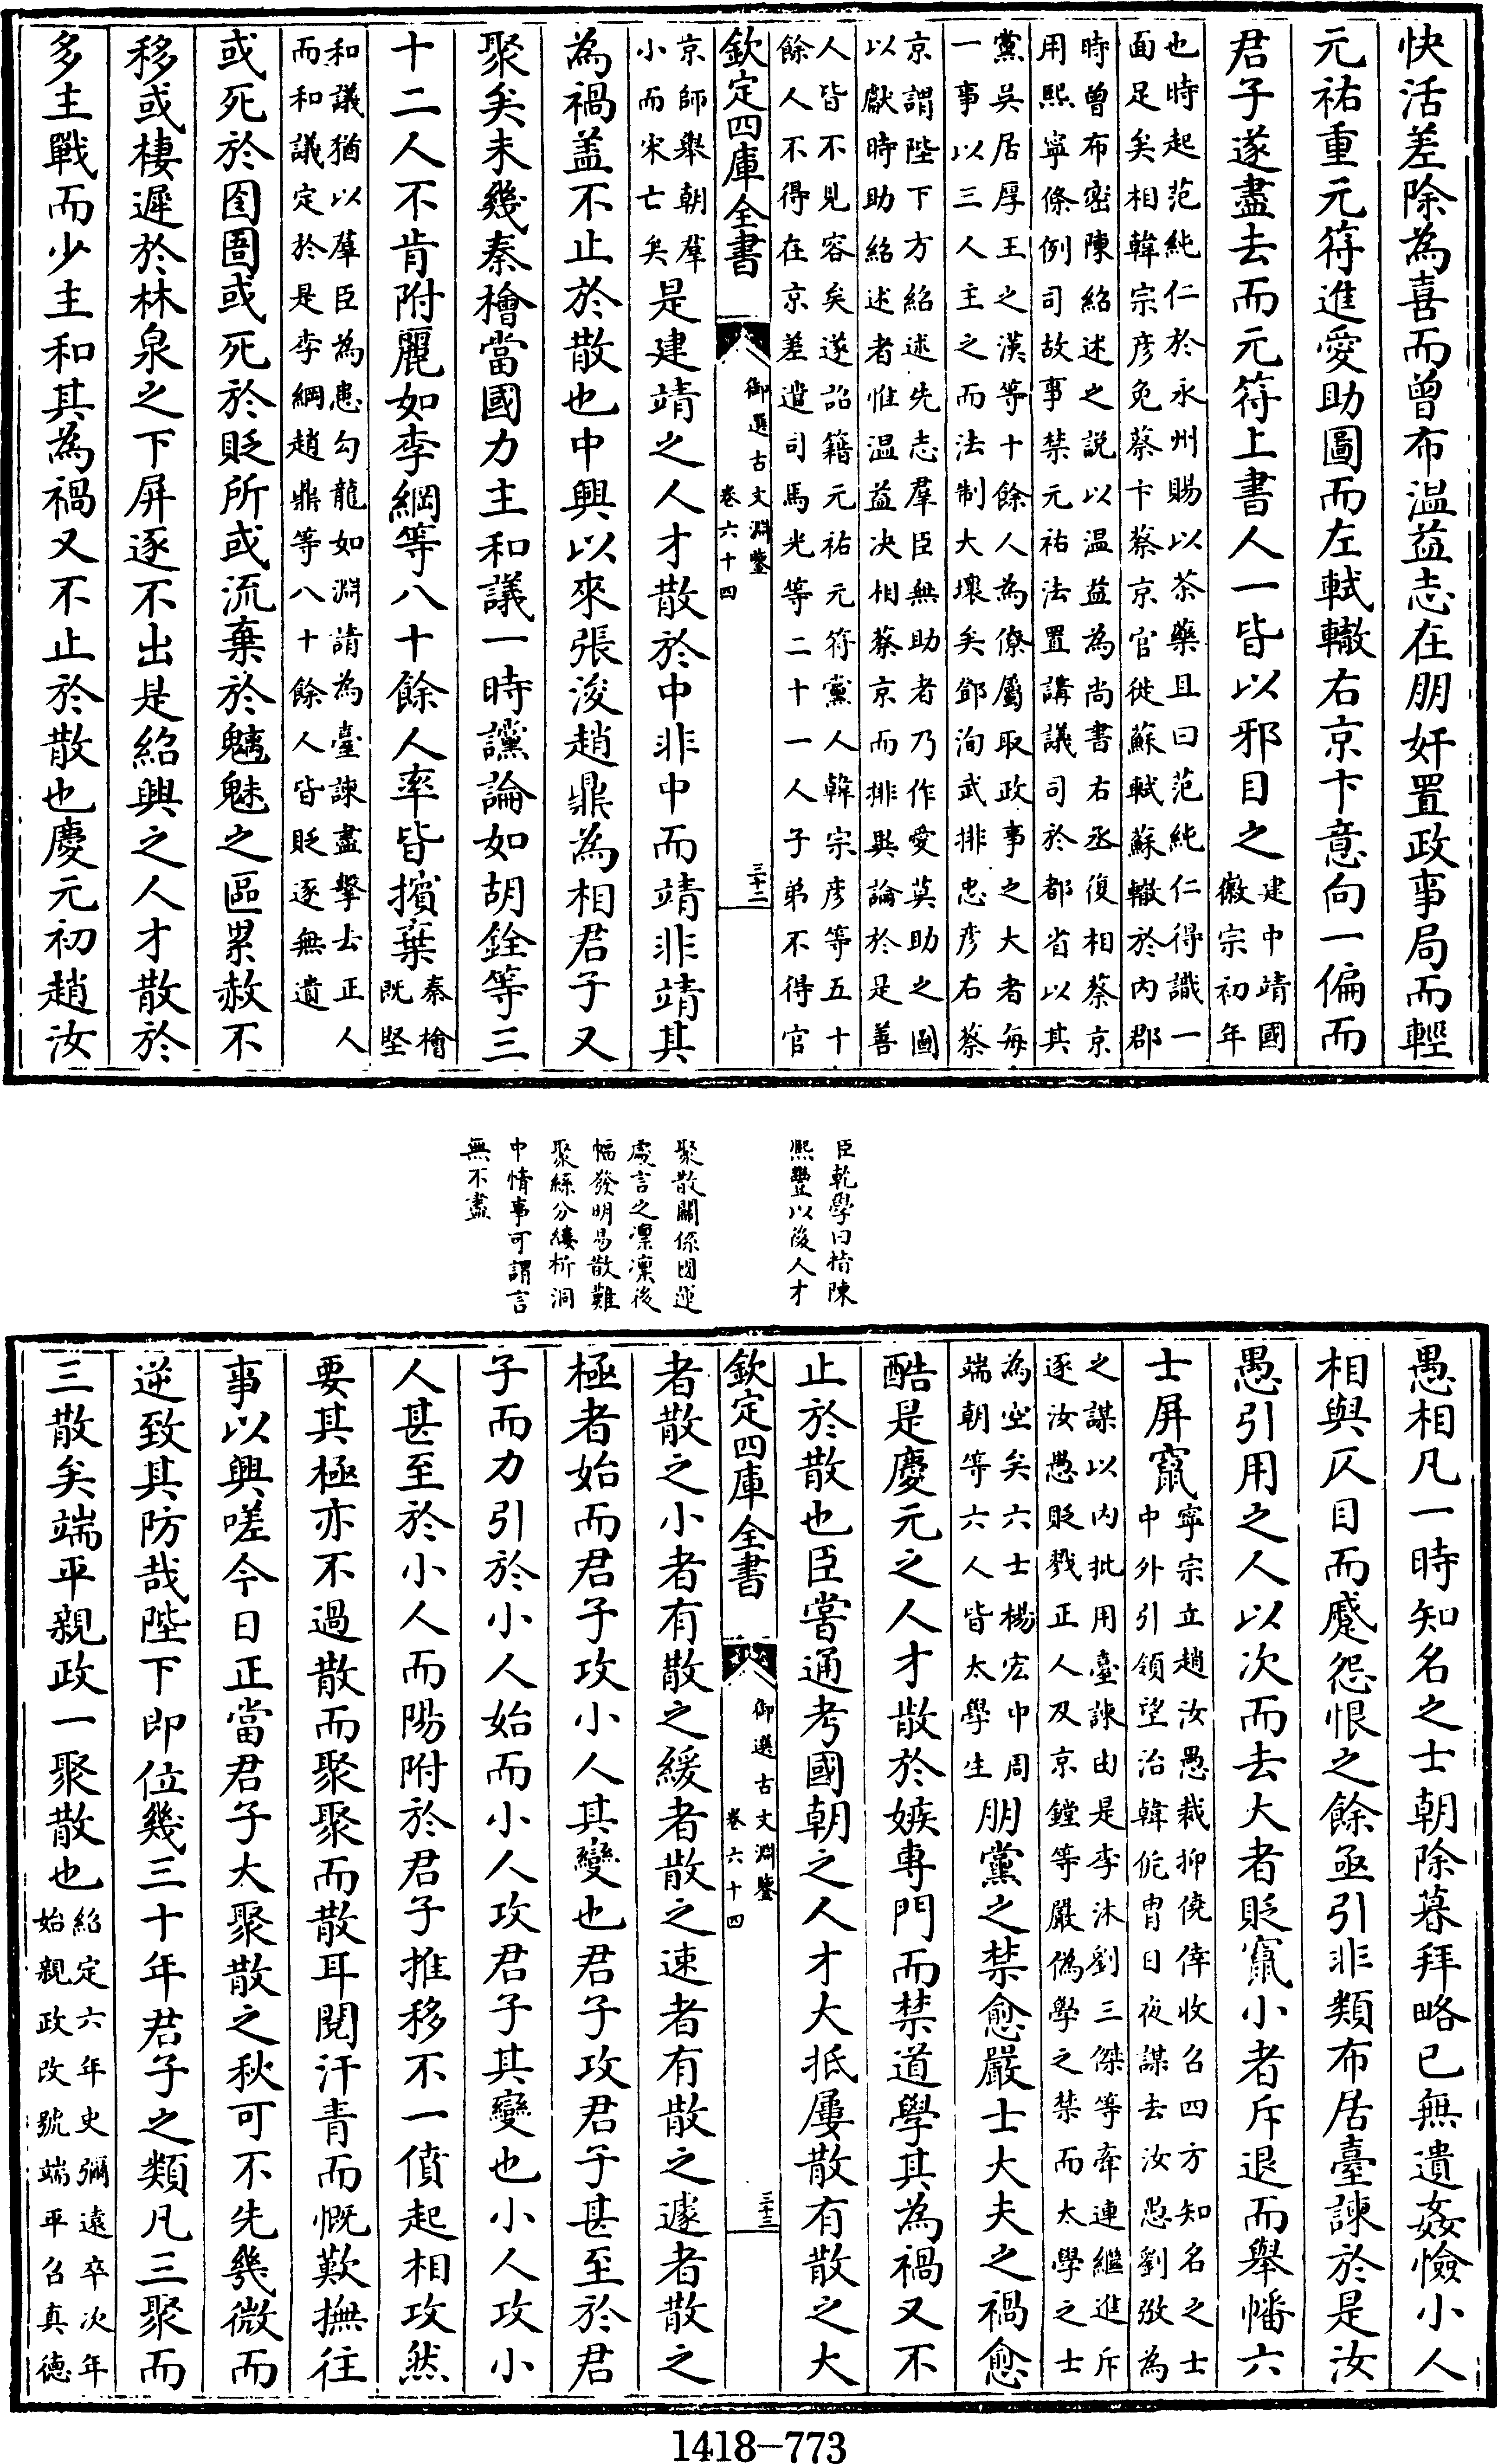 快活差除為喜而曾布溫益志在朋奸置政事局而輕
元祐重元符進愛助圖而左軾轍右京卞意向一偏而
君子遂盡去而元符上書人一皆以邪目之建中靖國徽宗初年
也時起范純仁於永州賜以茶藥且曰范純仁得識一
面足矣相韓宗彥免蔡卞蔡京官徙蘇軾蘇轍於內郡
時曾布密陳紹述之説以溫益為尚書右丞復相蔡京
用熙寧條例司故事禁元祐法置講議司於都省以其
黨吳居厚王之漢等十餘人為僚屬取政事之大者每
一事以三人主之而法制大壞矣鄧洵武排忠彥右蔡
京謂陛下方紹述先志羣臣無助者乃作愛莫助之圖
以獻時助紹述者惟溫益決相蔡京而排異論於是善
人皆不見容矣遂詔籍元祐元符黨人韓宗彥等五十
餘人不得在京差遣司馬光等二十一人子弟不得官
欽定四庫全書 御選古文淵鑒 卷六十四 三十二
京師舉朝羣
小而宋亡矣
是建靖之人才散於中非中而靖非靖其
為禍盖不止於散也中興以來張浚趙鼎為相君子又
聚矣未幾秦檜當國力主和議一時讜論如胡銓等三
十二人不肯附麗如李綱等八十餘人率皆擯棄秦檜既堅
和議猶以羣臣為患勾龍如淵請為臺諫盡擊去正人
而和議定於是李綱趙鼎等八十餘人皆貶逐無遺
或死於囹圄或死於貶所或流棄於魑魅之區累赦不
移或棲遲於林泉之下屏逐不出是紹興之人才散於
多主戰而少主和其為禍又不止於散也慶元初趙汝
臣乾學曰指陳
熙豐以後人才
聚散關係國運
處言之凜凜後
幅發明易散難
聚絲分縷析洞
中情事可謂言
無不盡
愚相凡一時知名之士朝除暮拜略已無遺姦憸小人
相與仄目而蹙怨恨之餘亟引非類布居臺諫於是汝
愚引用之人以次而去大者貶竄小者斥退而舉幡六
士屏竄寧宗立趙汝愚裁抑僥倖收召四方知名之士
中外引領望治韓侂胄日夜謀去汝愚劉弢為
之謀以內批用臺諫由是李沐劉三傑等牽連繼進斥
逐汝愚貶戮正人及京鏜等嚴偽學之禁而太學之士
為空矣六士楊宏中周
端朝等六人皆太學生
朋黨之禁愈嚴士大夫之禍愈
酷是慶元之人才散於嫉專門而禁道學其為禍又不
止於散也臣嘗通考國朝之人才大抵屢散有散之大
欽定四庫全書 御選古文淵鑒 卷六十四 三十三
者散之小者有散之緩者散之速者有散之遽者散之
極者始而君子攻小人其變也君子攻君子甚至於君
子而力引於小人始而小人攻君子其變也小人攻小
人甚至於小人而陽附於君子推移不一僨起相攻然
要其極亦不過散而聚聚而散耳閱汗青而慨歎撫往
事以興嗟今日正當君子太聚散之秋可不先幾微而
逆致其防哉陛下即位幾三十年君子之類凡三聚而
三散矣端平親政一聚散也紹定六年史彌遠卒次年
始親政改號端平召真德
1418-773